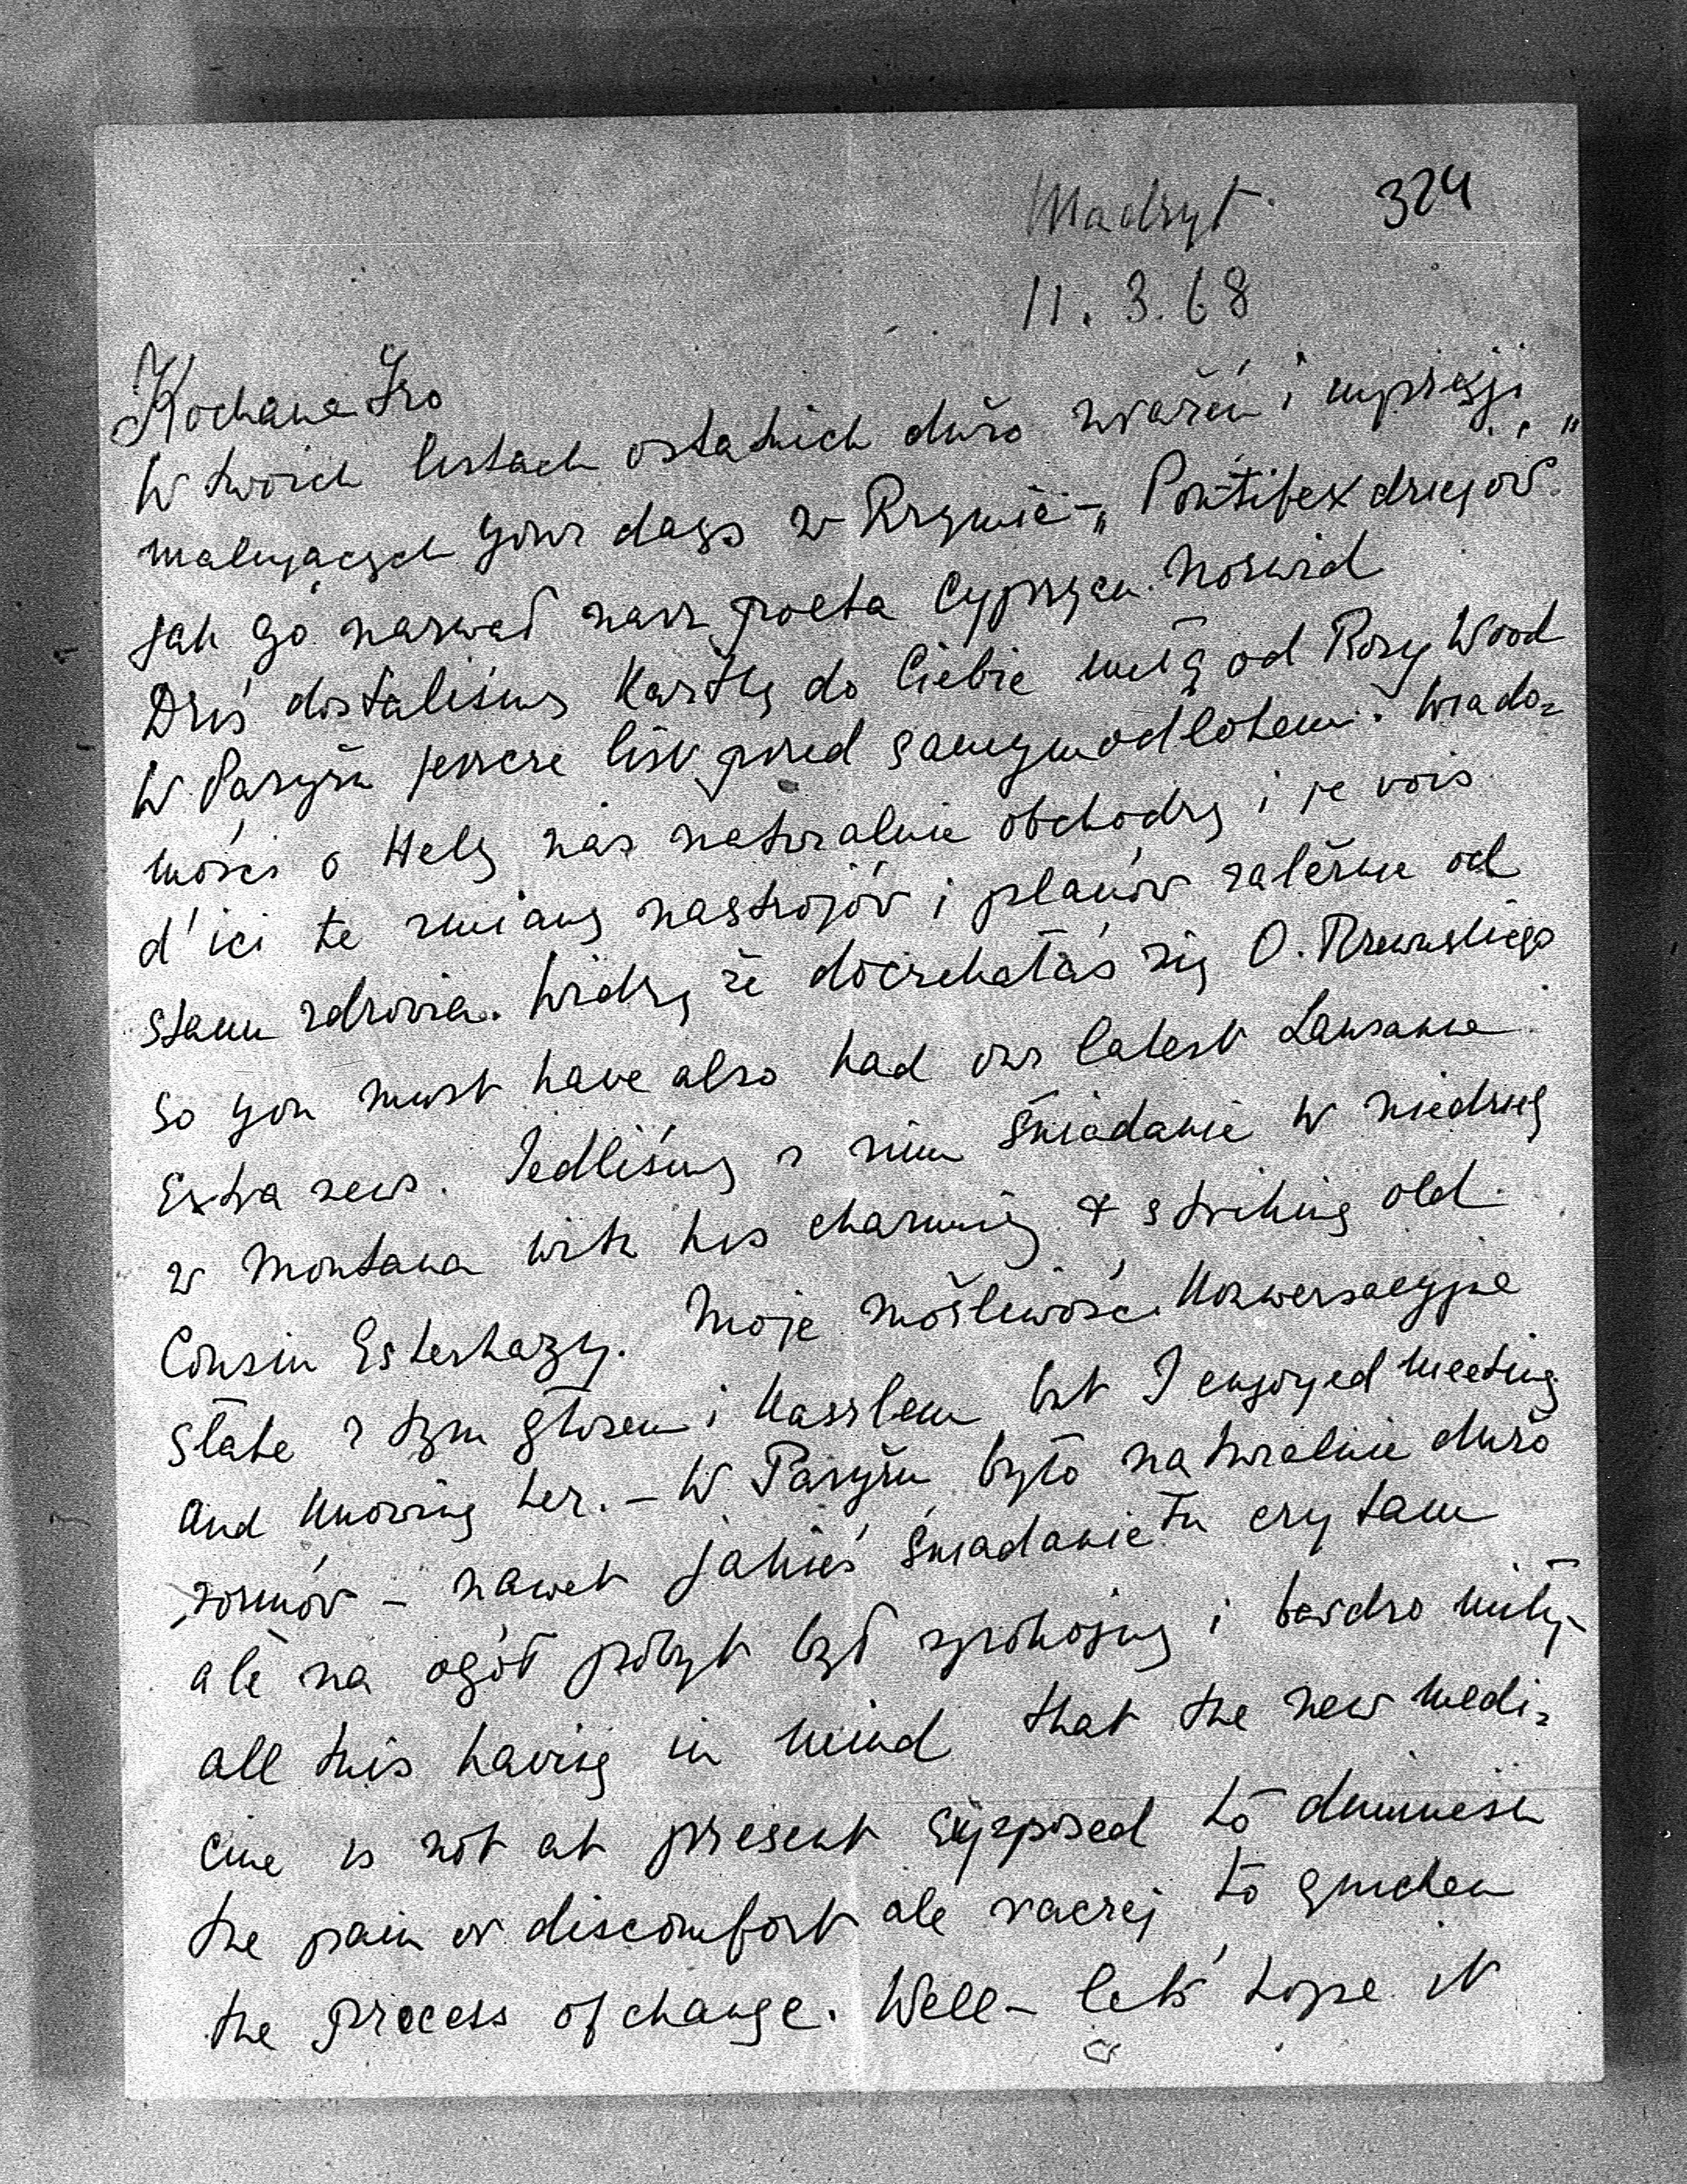 Madryt 324
11.3.68
Kochana Izo
W twoich listach ostatnich dużo wrażeń i impresji
malujących your days w Rzymie - „Pontifex dziejów"
jak go nazwał nasz poeta Cyprjan Norwid
Dziś dostaliśmy kartkę do Ciebie miłą od Rosy Wood
W Paryżu jeszcze list przed samym odlotem. Wiado=
mości o Helę nas naturalnie obchodzą i je vois
d'ici te zmiany nastrojów i planów zależne od
stanu zdrowia. Widzę że doczekałaś się O. Rzewuskiego
so you must have also had our latest Lausanne
Extra news. Jedliśmy z nim śniadanie w niedzielę
w Montana with his charming & striking old
Cousin Esterhazy. Moje możliwości konwersacyjne
słabe z tym głosem i kaszlem but I enjoyed meeting
and knowing her. - W Paryżu było naturalnie dużo
- nawet jakieś śniadanie tu czy tam
ale na ogół pobyt był spokojny i bardzo miły -
all this having in mind that the new medi=
cine is not at present supposed to diminish
the pain or discomfort ale raczej to quicken
the process of change. Well - let's hope it